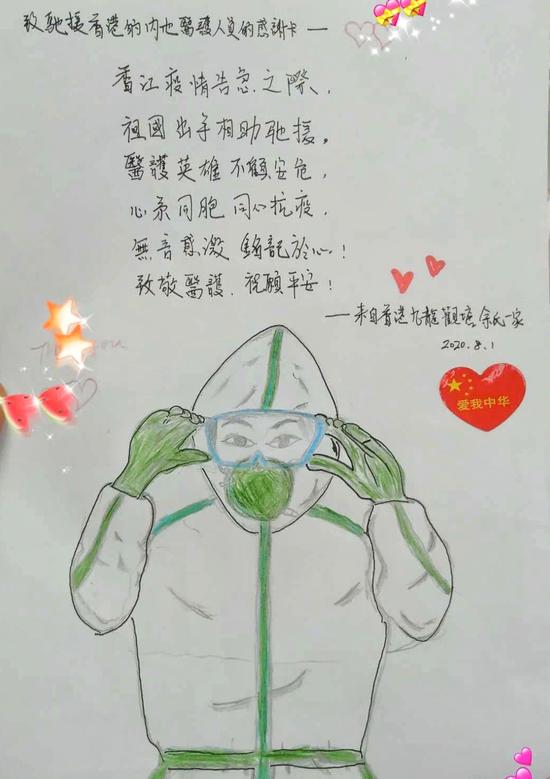 致馳援香港的内地醫護人員的感謝卡—
香江疫情告急之際、
祖國出手相助馳援。
醫護英雄不顧安危,
心系同胞 同心抗疫,
感激 銘記於心!
致敬醫護、祝願平安!
——来自香港九龍觀塘余氏一家
2020.8.1
爱我中华